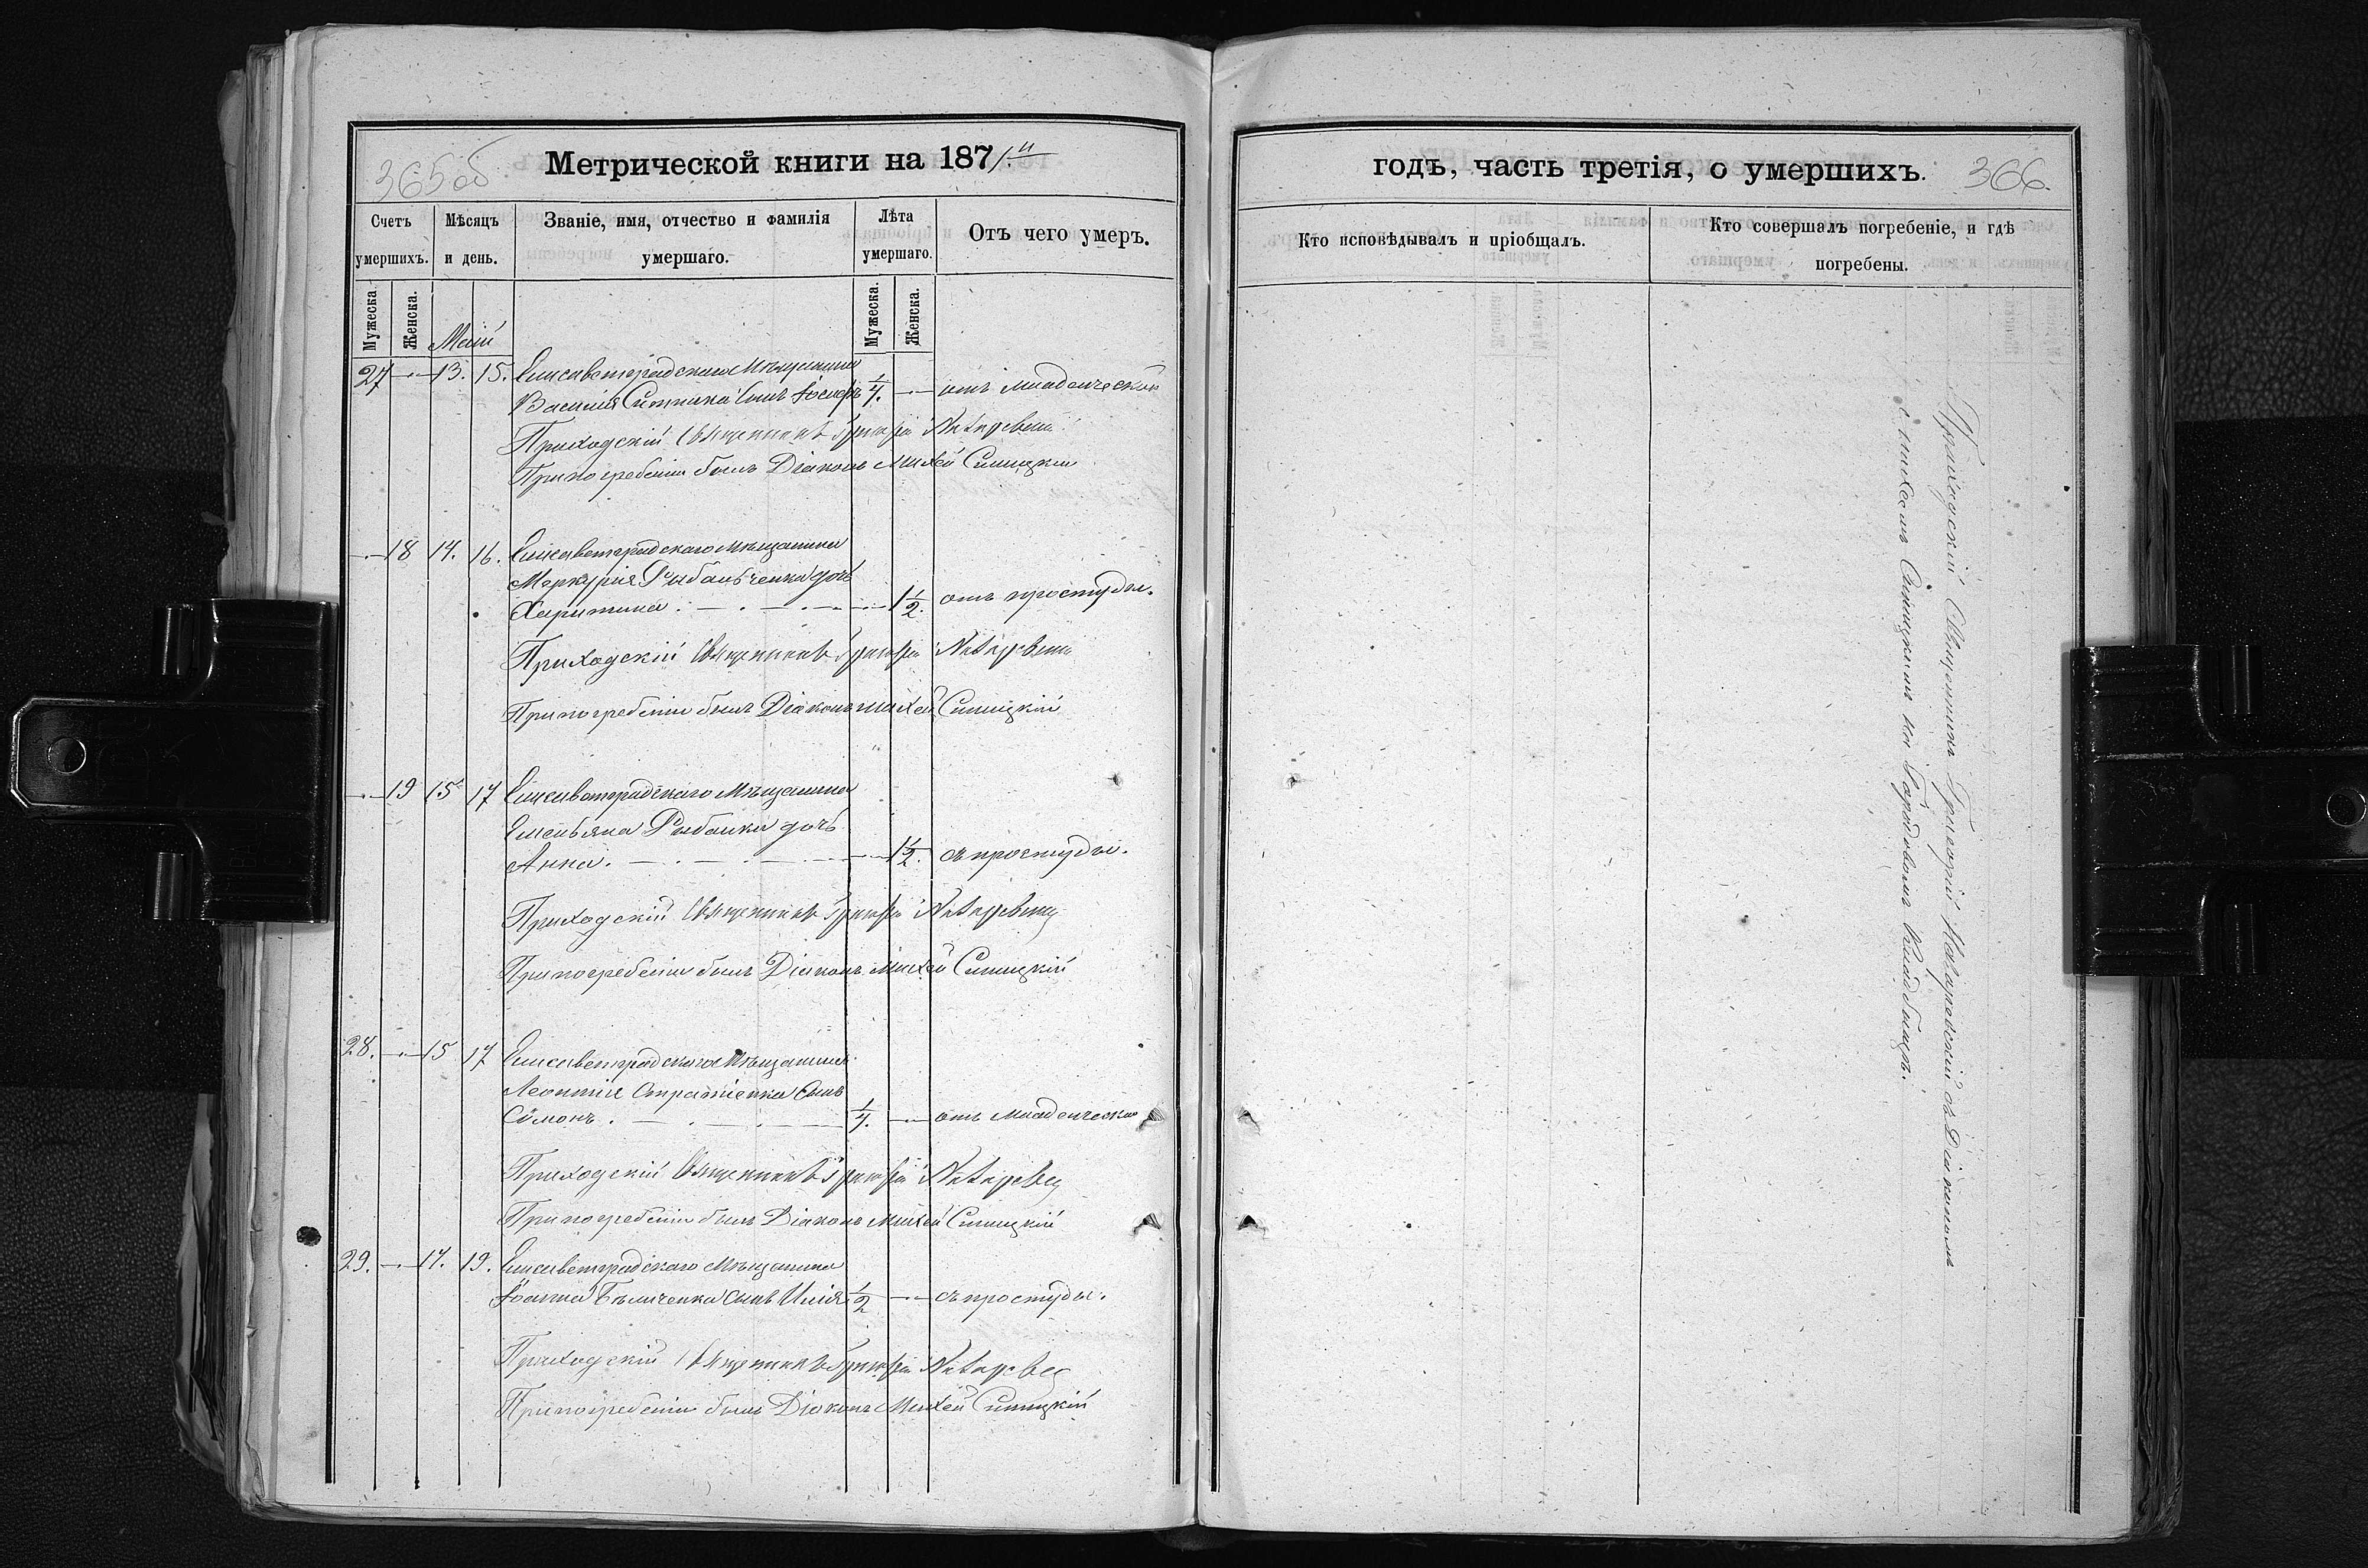 365 об
Метрической книги на 1871й
Счетъ умершихъ.
Мѣсяцъ и день.
Званіе, имя, отчество и фамилія умершаго.
Лѣта умершаго.
Отъ чего умеръ.
Мужеска. Женска.
Мужеска. Женска.
Маій
27 — 13. 15. Елисаветградскаго Мѣщанина
Василія Ситника сынъ Іосифъ 1/4. — отъ младенческой
Приходскій Священникъ Григорій Назаревскій
При погребеніи былъ Діаконъ Михей Синицкій
— 18 14. 16. Елисаветградскаго мѣщанина
Меркурія Рыбальченка дочь
Харитина. — 1 1/2. отъ простуды.
Приходскій Священникъ Григорій Назаревскій
При погребеніи былъ Діаконъ Михей Синицкій
— 19 15 17 Елисаветградскаго Мѣщанина
Емельяна Рыбалки дочь
Анна. — 1/2. съ простуды.
Приходскій Священникъ Григорій Назаревскій
При погребеніи былъ Діаконъ Михей Синицкій
28. — 15 17 Елисаветградскаго Мѣщанина
Леонтія сынъ
Симонъ. — 1/4. — отъ младенческой
Приходскій Священникъ Григорій Назаревс
При погребеніи былъ Діаконъ Михей Синицкій
29. — 17. 19. Елисаветградскаго Мѣщанина
Іоанна Бѣличенка сынъ Илія 1/2 — съ простуды.
Приходскій Священникъ Григорій Назаревс
При погребеніи былъ Діаконъ Михей Синицкій
годъ, часть третія, о умершихъ.
366.
Кто исповѣдывалъ и пріобщалъ.
Кто совершалъ погребеніе, и гдѣ погребены.
Приходскій Священникъ Григорій Назаревскій съ Діакономъ
Михеемъ Синицкимъ на Городовомъ Кладбищѣ.